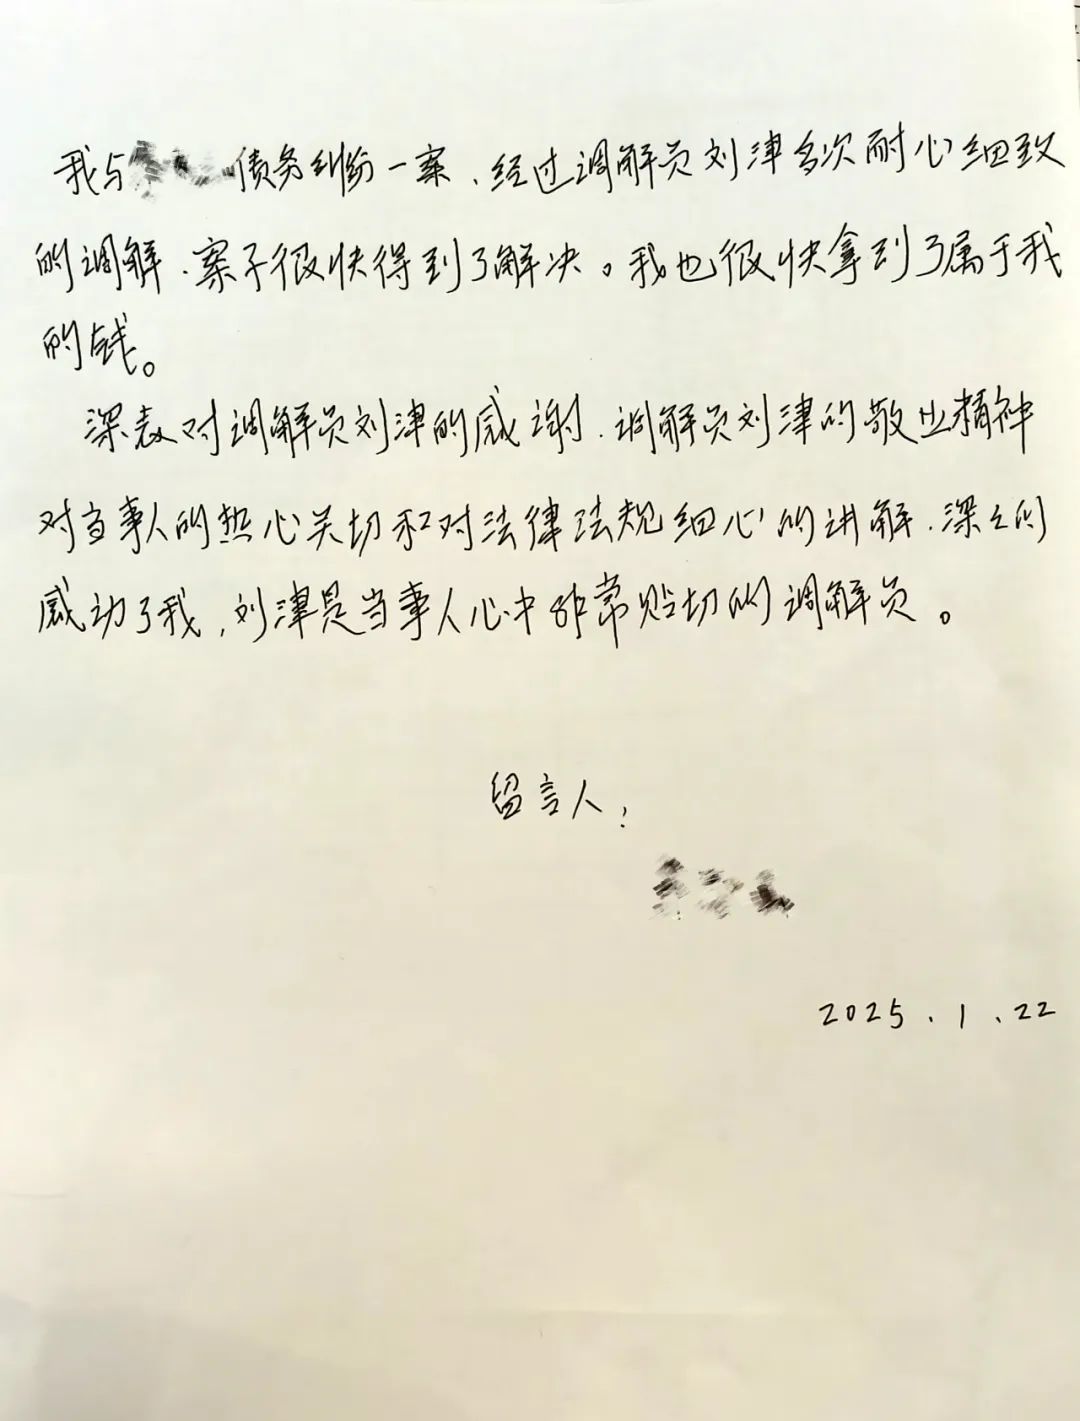 我与债务纠纷一案、经过调解员刘津多次耐心细致
的调解、案子很快得到了解决。我也很快拿到了属于我
的钱。
深表对调解员刘津的感谢、调解员刘津的敬业精神
对当事人的热心关切和对法律法规细心的讲解、深之的
感动了我,刘津是当事人心中非常贴切的调解员。
留言人:
2025、1、22